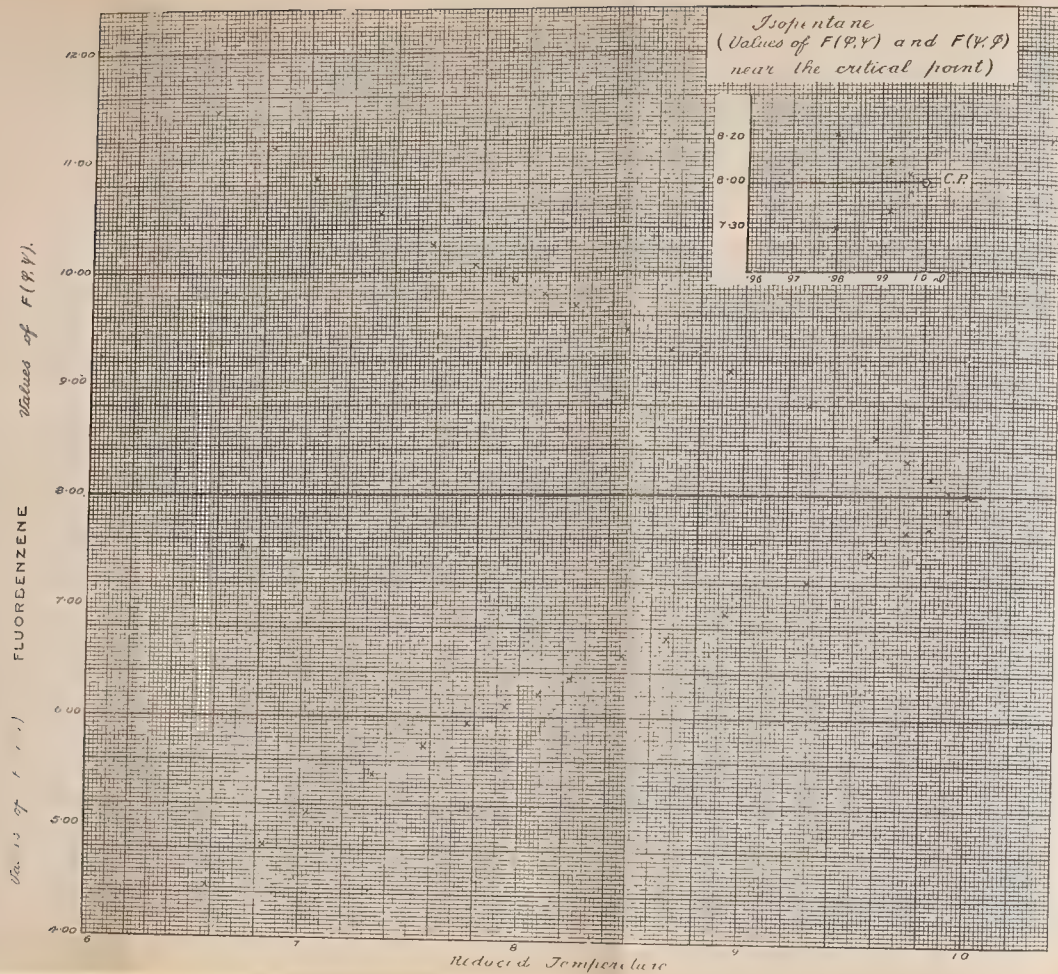 Isopentane
(Values of F(φ,ψ) and F(ψ,φ)
near the critical point)
8·20
8·00
7·30
C.P.
·96 ·97 ·98 ·99 1·0
12·00
11·00
10·00
9·00
8·00
7·00
6·00
5·00
4·00
Values of F(φ,ψ).
FLUORBENZENE
of
6 7 8 9 10
Reduced Temperature